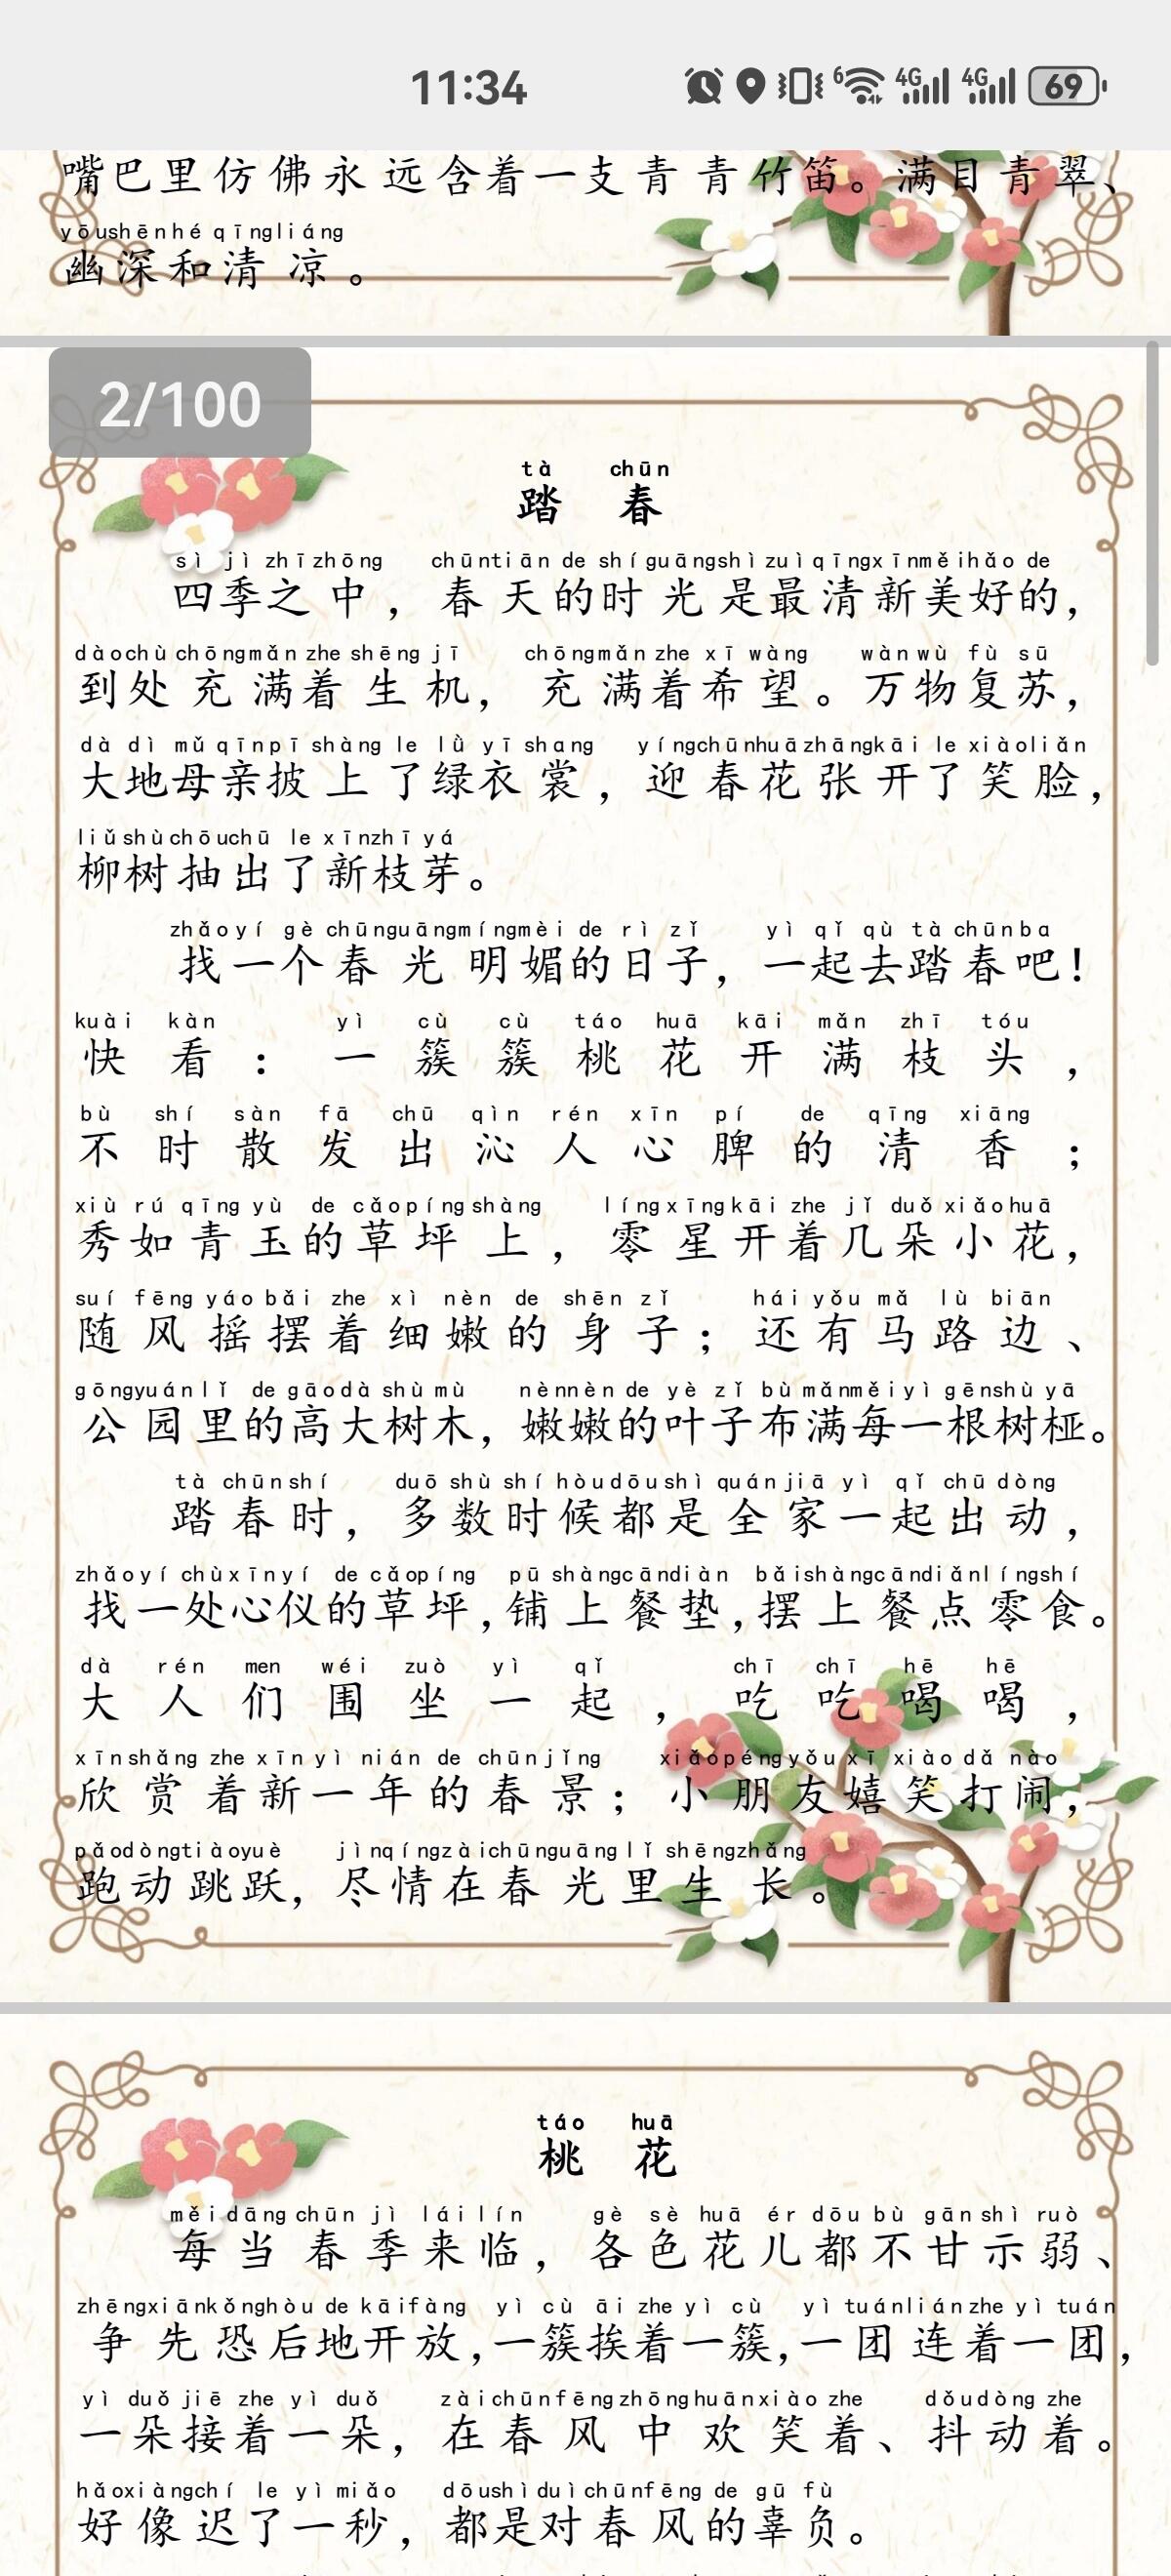 11:34
6 4G 4G 69
嘴巴里仿佛永远含着一支青青竹笛。满目青翠、
yōushēnhé qīngliáng
幽深和清凉。
2/100
tà chūn
踏春
sì jì zhīzhōng chūntiān de shíguāngshìzuìqīngxīnměihǎo de
四季之中，春天的时光是最清新美好的，
dàochù chōngmǎn zhe shēng jī chōngmǎn zhe xī wàng wànwù fù sū
到处充满着生机，充满着希望。万物复苏，
dà dì mǔ qīnpī shàng le lǜ yī shang yíngchūnhuāzhāngkāi le xiàoliǎn
大地母亲披上了绿衣裳，迎春花张开了笑脸，
liǔshùchōuchū le xīnzhī yá
柳树抽出了新枝芽。
zhǎoyí gè chūnguāngmíngmèi de rì zǐ yì qǐ qù tà chūnba
找一个春光明媚的日子，一起去踏春吧！
kuài kàn yì cù cù táo huā kāi mǎn zhī tóu
快看：一簇簇桃花开满枝头，
bù shí sàn fā chū qìn rén xīn pí de qīng xiāng
不时散发出沁人心脾的清香；
xiù rú qīng yù de cǎopíng shàng língxīngkāi zhe jǐ duǒ xiǎohuā
秀如青玉的草坪上，零星开着几朵小花，
suí fēng yáo bǎi zhe xì nèn de shēn zǐ hái yǒu mǎ lù biān
随风摇摆着细嫩的身子；还有马路边、
gōngyuánlǐ de gāodà shù mù nènnèn de yè zǐ bù mǎnměiyì gēnshù yā
公园里的高大树木，嫩嫩的叶子布满每一根树桠。
tà chūnshí duō shù shí hòudōushì quánjiā yì qǐ chū dòng
踏春时，多数时候都是全家一起出动，
zhǎoyí chùxīnyí de cǎopíng pū shàngcāndiàn bǎishàngcāndiǎnlíngshí
找一处心仪的草坪，铺上餐垫，摆上餐点零食。
dà rén men wéi zuò yì qǐ chī chī hē hē
大人们围坐一起，吃吃喝喝，
xīnshǎng zhe xīn yì nián de chūnjǐng xiǎopéngyǒu xī xiào dǎ nào
欣赏着新一年的春景；小朋友嬉笑打闹，
pǎodòngtiàoyuè jìnqíngzàichūnguāng lǐ shēngzhǎng
跑动跳跃，尽情在春光里生长。
táo huā
桃花
měi dāng chūn jì láilín gè sè huā ér dōu bù gānshì ruò
每当春季来临，各色花儿都不甘示弱、
zhēngxiānkǒnghòu de kāifàng yì cù āi zhe yì cù yì tuánliánzhe yì tuán
争先恐后地开放，一簇挨着一簇，一团连着一团，
yì duǒ jiē zhe yì duǒ zàichūnfēngzhōnghuānxiào zhe dǒudòng zhe
一朵接着一朵，在春风中欢笑着、抖动着。
hǎoxiàngchí le yì miǎo dōushìduìchūnfēng de gū fù
好像迟了一秒，都是对春风的辜负。